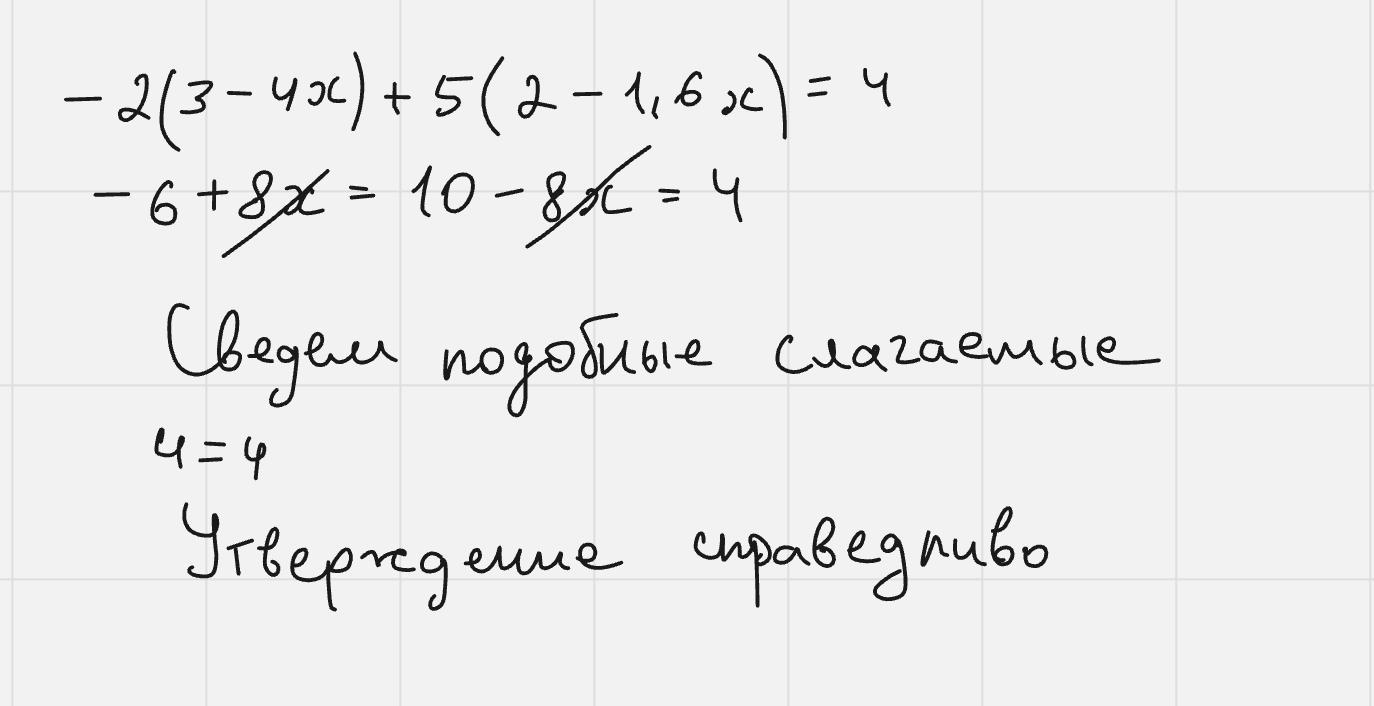 -2(3-4x)+5(2-1,6x)=4
-6+8x=10-8x=4
Сведем подобные слагаемые
4=4
Утверждение справедливо